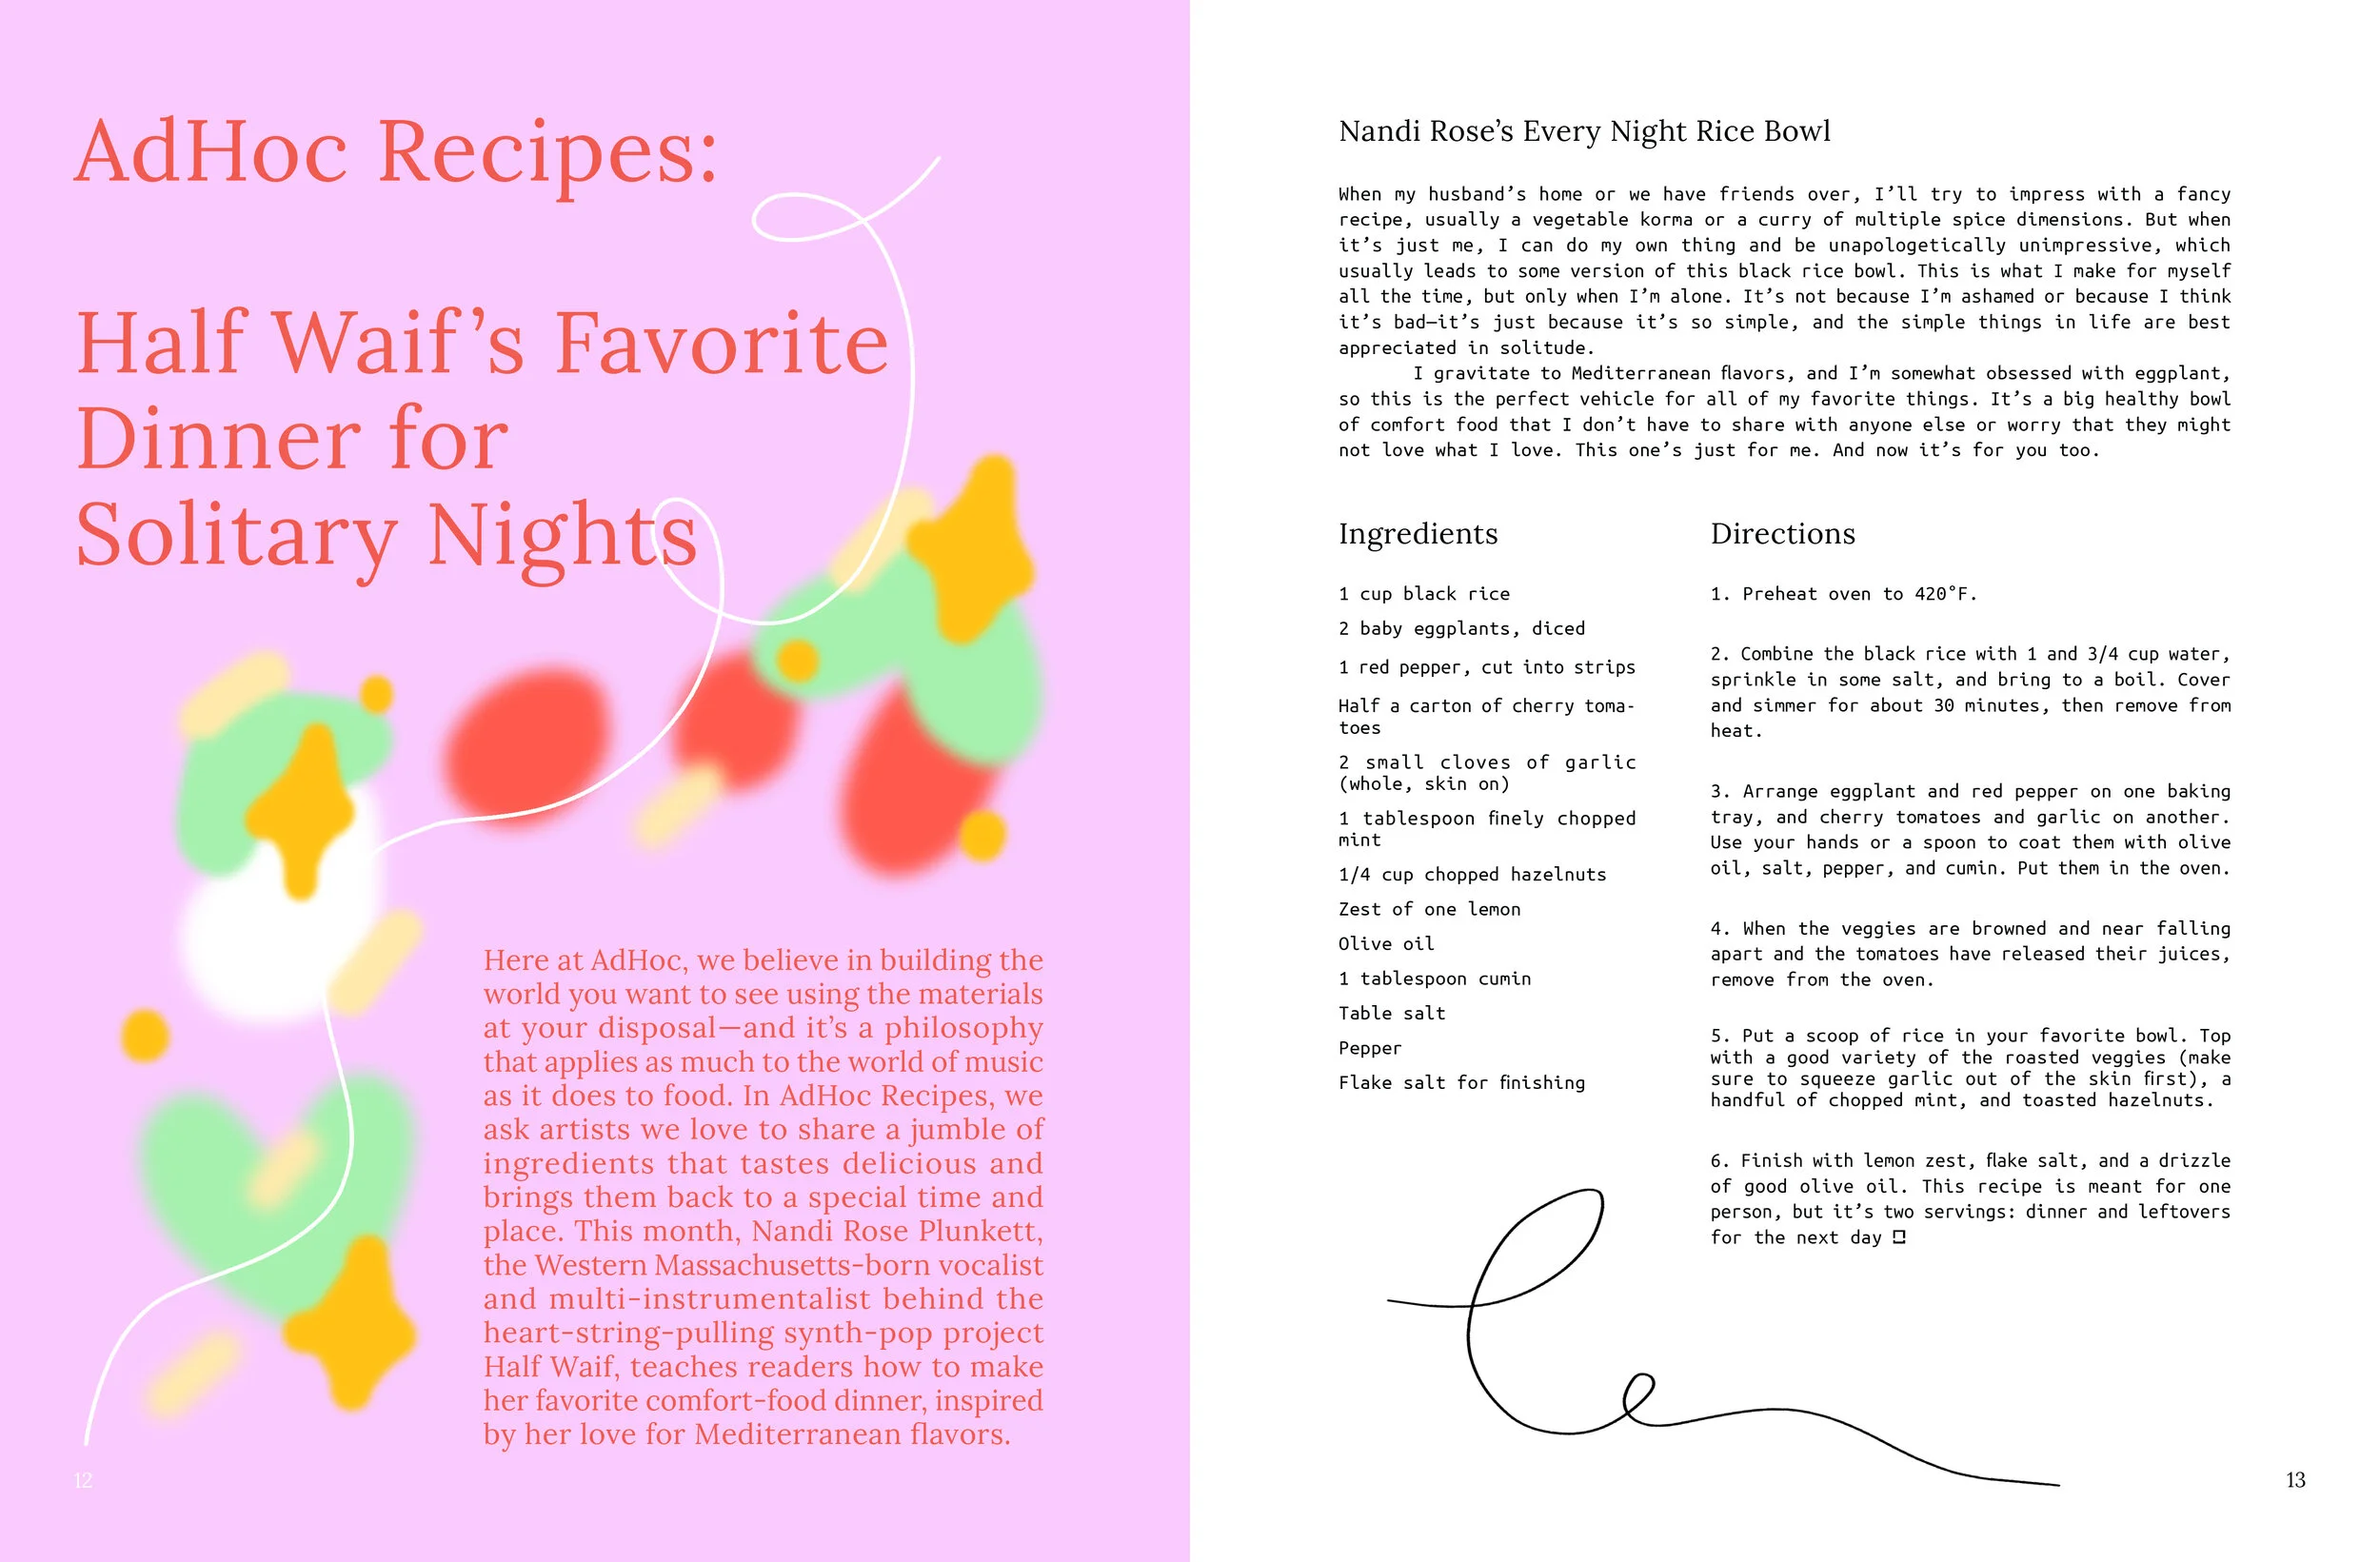 AdHoc Recipes:
Half Waif’s Favorite
Dinner for
Solitary Nights
Here at AdHoc, we believe in building the
world you want to see using the materials
at your disposal—and it’s a philosophy
that applies as much to the world of music
as it does to food. In AdHoc Recipes, we
ask artists we love to share a jumble of
ingredients that tastes delicious and
brings them back to a special time and
place. This month, Nandi Rose Plunkett,
the Western Massachusetts-born vocalist
and multi-instrumentalist behind the
heart-string-pulling synth-pop project
Half Waif, teaches readers how to make
her favorite comfort-food dinner, inspired
by her love for Mediterranean flavors.
12
Nandi Rose’s Every Night Rice Bowl
When my husband’s home or we have friends over, I’ll try to impress with a fancy
recipe, usually a vegetable korma or a curry of multiple spice dimensions. But when
it’s just me, I can do my own thing and be unapologetically unimpressive, which
usually leads to some version of this black rice bowl. This is what I make for myself
all the time, but only when I’m alone. It’s not because I’m ashamed or because I think
it’s bad—it’s just because it’s so simple, and the simple things in life are best
appreciated in solitude.
I gravitate to Mediterranean flavors, and I’m somewhat obsessed with eggplant,
so this is the perfect vehicle for all of my favorite things. It’s a big healthy bowl
of comfort food that I don’t have to share with anyone else or worry that they might
not love what I love. This one’s just for me. And now it’s for you too.
Ingredients
1 cup black rice
2 baby eggplants, diced
1 red pepper, cut into strips
Half a carton of cherry toma-
toes
2 small cloves of garlic
(whole, skin on)
1 tablespoon finely chopped
mint
1/4 cup chopped hazelnuts
Zest of one lemon
Olive oil
1 tablespoon cumin
Table salt
Pepper
Flake salt for finishing
Directions
1. Preheat oven to 420°F.
2. Combine the black rice with 1 and 3/4 cup water,
sprinkle in some salt, and bring to a boil. Cover
and simmer for about 30 minutes, then remove from
heat.
3. Arrange eggplant and red pepper on one baking
tray, and cherry tomatoes and garlic on another.
Use your hands or a spoon to coat them with olive
oil, salt, pepper, and cumin. Put them in the oven.
4. When the veggies are browned and near falling
apart and the tomatoes have released their juices,
remove from the oven.
5. Put a scoop of rice in your favorite bowl. Top
with a good variety of the roasted veggies (make
sure to squeeze garlic out of the skin first), a
handful of chopped mint, and toasted hazelnuts.
6. Finish with lemon zest, flake salt, and a drizzle
of good olive oil. This recipe is meant for one
person, but it’s two servings: dinner and leftovers
for the next day
13